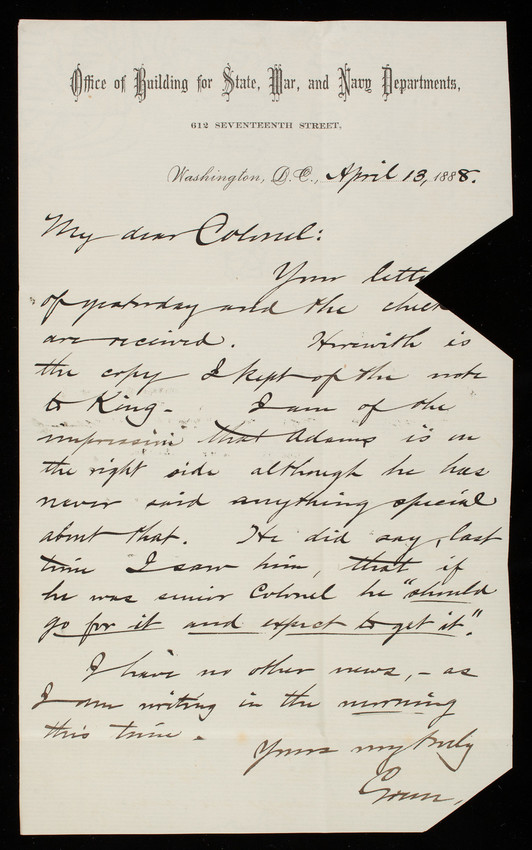 Office of Building for State, War, and Navy Departments,
612 SEVENTEENTH STREET,
Washington, D.C., April 13, 1888.
My dear Colonel:
Your lette
of yesterday and the check
are received. Herewith is
the copy I kept of the note
to King. I am of the
impression that Adams is on
the right side although he has
never said anything special
about that. He did say, last
time I saw him, that if
he was senior Colonel he "should
go for it and expect to get it."
I have no other news, - as
I am writing in the morning
this time.
Yours very truly